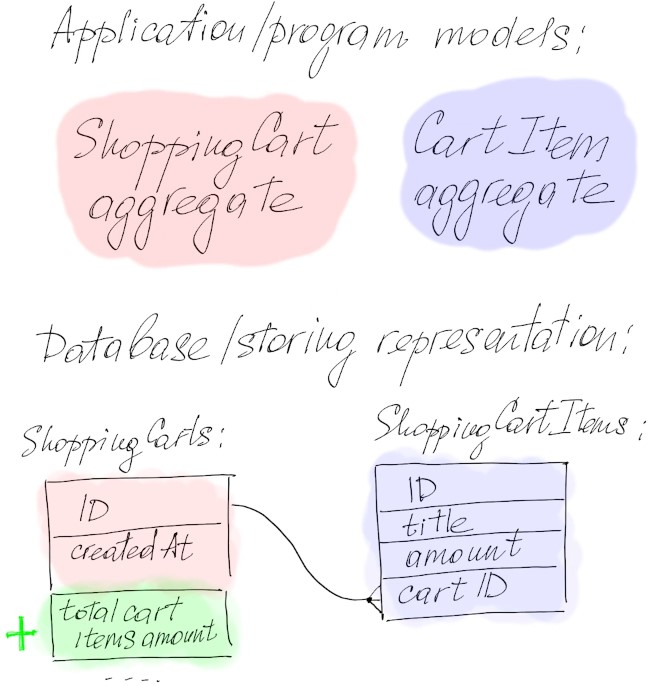 Application/program models:
Shopping Cart
aggregate
Cart Item
aggregate
Database/storing representation:
Shopping Carts:
ID
created At
total cart
items amount
+
Shopping Cart Items:
ID
title
amount
cart ID